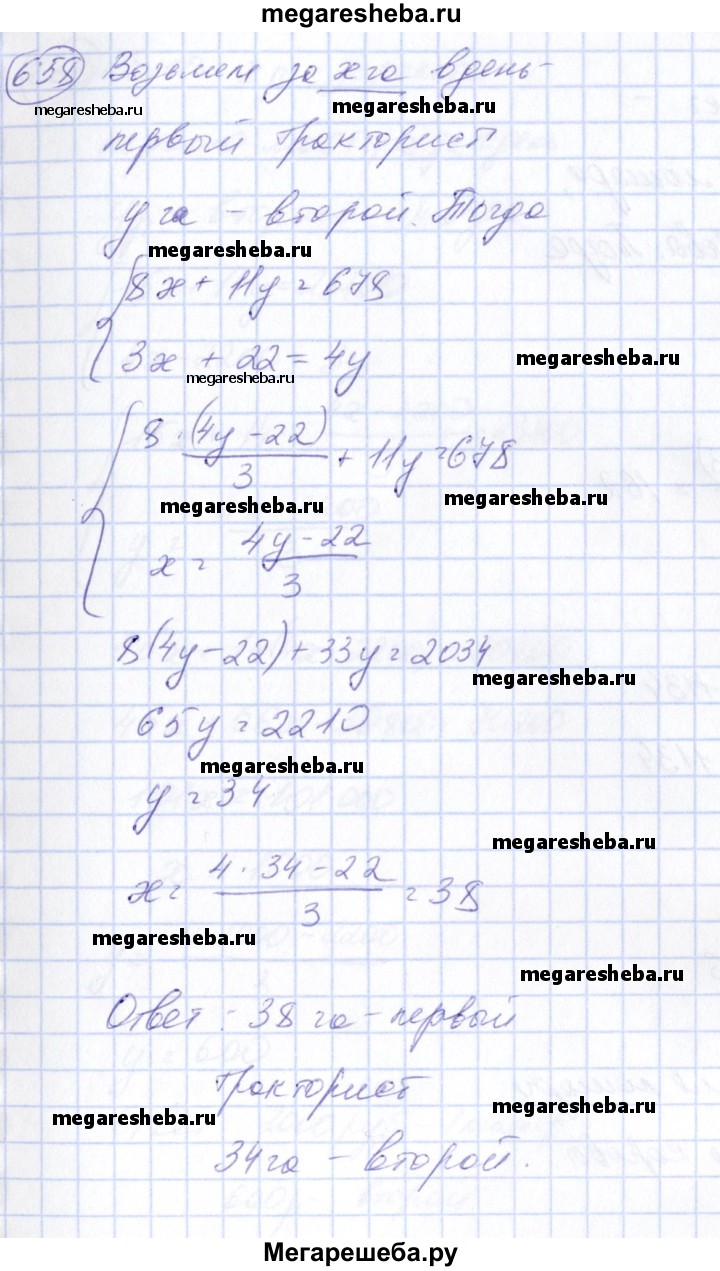 megaresheba.ru
658 Возьмем за х га в день -
megaresheba.ru megaresheba.ru
первый тракторист
у га - второй. Тогда
megaresheba.ru
8x + 11y = 678
3x + 22 = 4y
megaresheba.ru
megaresheba.ru
8 · (4y - 22) / 3 + 11y = 678
megaresheba.ru megaresheba.ru
x = (4y - 22) / 3
8(4y - 22) + 33y = 2034
megaresheba.ru
65y = 2210
megaresheba.ru
y = 34
megaresheba.ru
x = (4 · 34 - 22) / 3 = 38
megaresheba.ru
megaresheba.ru
Ответ: 38 га - первый
тракторист
megaresheba.ru megaresheba.ru
34 га - второй.
Мегарешеба.ру